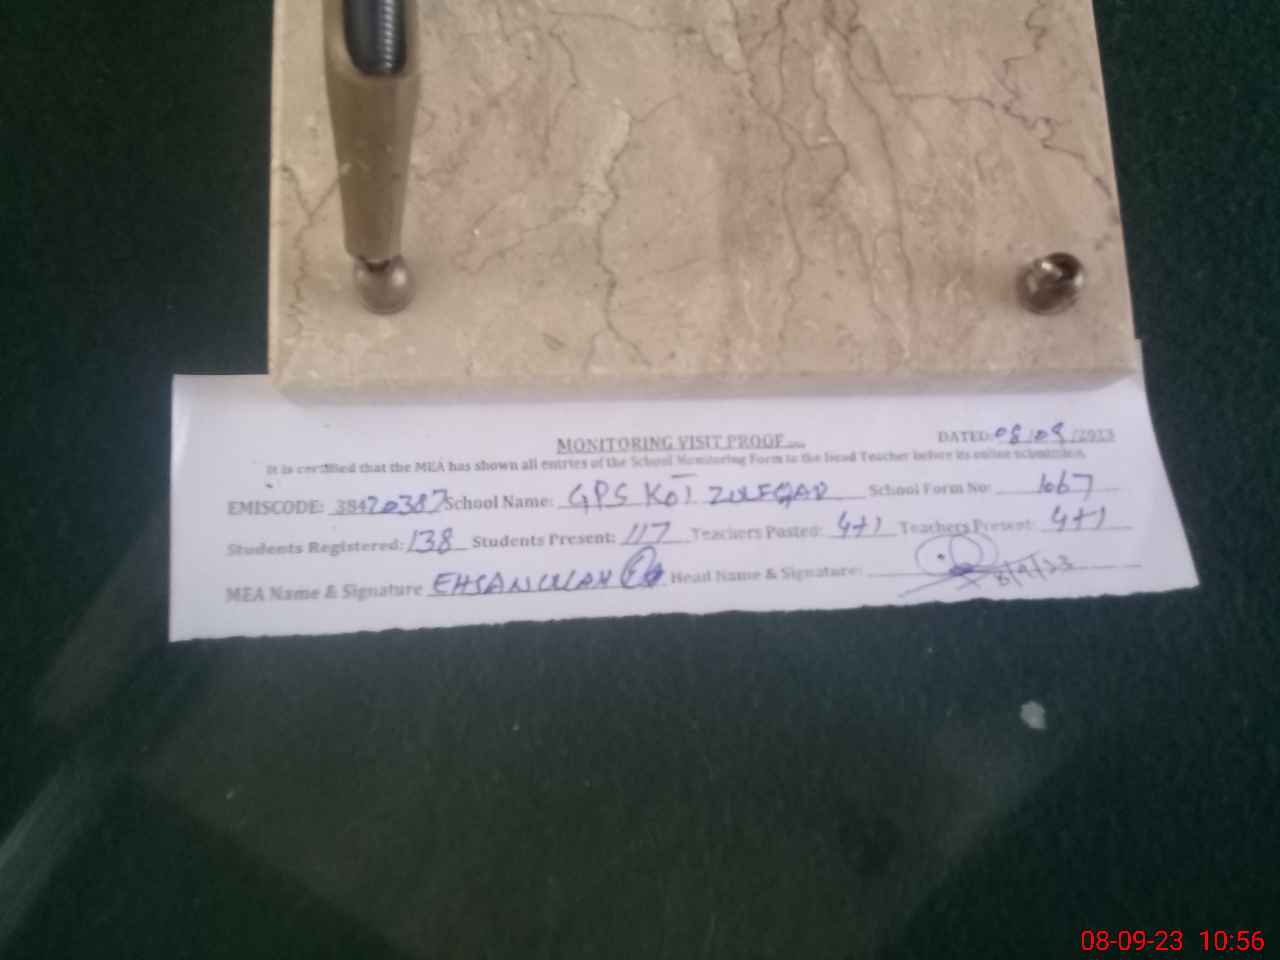 MONITORING VISIT PROOF
DATED: 08/09/2023
It is certified that the MEA has shown all entries of the School Monitoring Form to the Head Teacher before its online submission.
EMISCODE: 38420387 School Name: GPS KOT ZULFQAR School Form No: 1067
Students Registered: 138 Students Present: 117 Teachers Posted: 4+1 Teachers Present: 4+1
MEA Name & Signature EHSANULLAH Head Name & Signature: 8/9/23
08-09-23 10:56